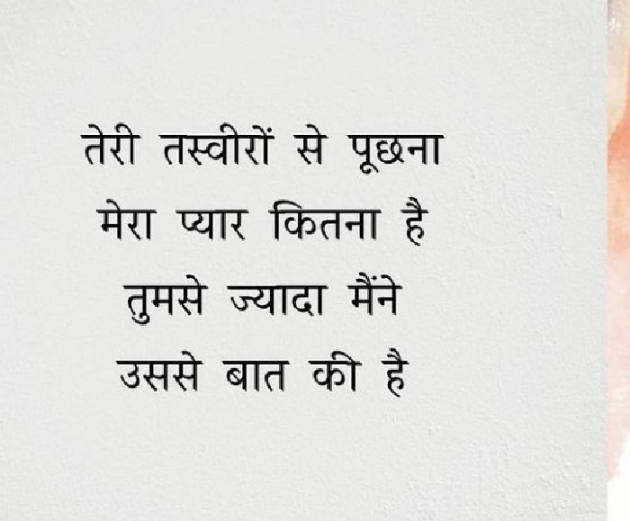 तेरी तस्वीरों से पूछना
मेरा प्यार कितना है
तुमसे ज्यादा मैंने
उससे बात की है